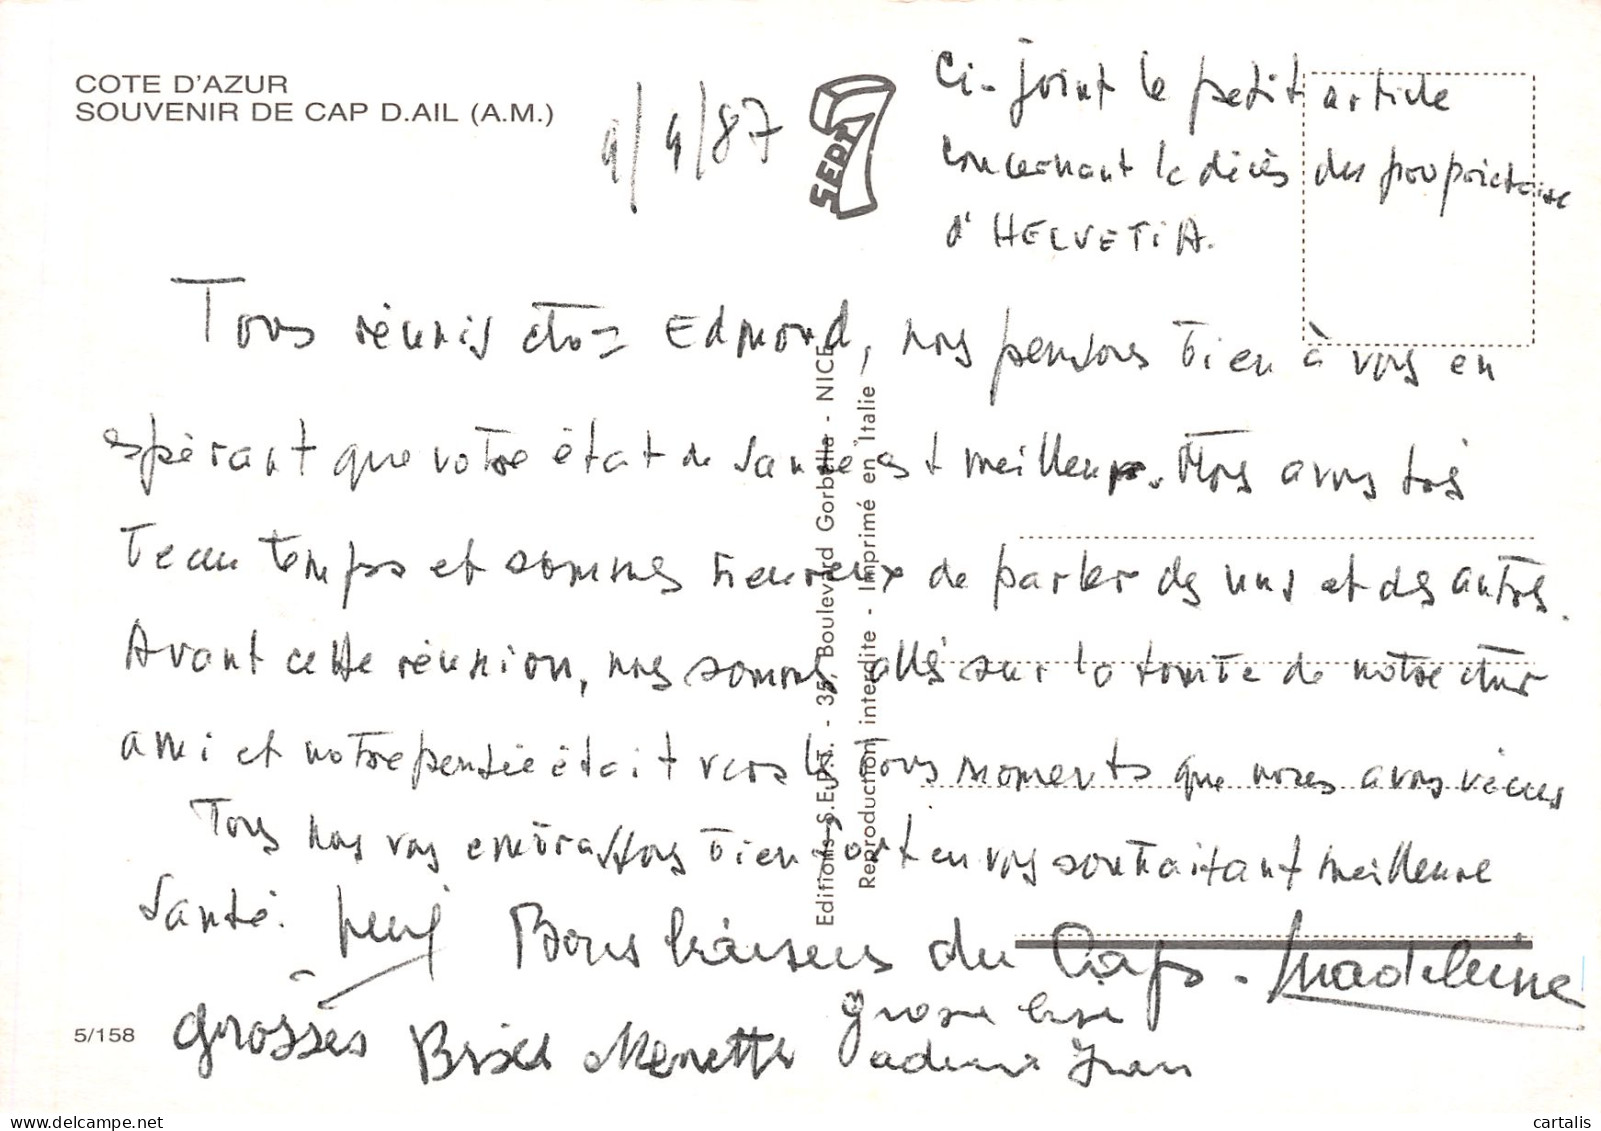 COTE D'AZUR
SOUVENIR DE CAP D.AIL (A.M.)
9/9/87
SEPT
Ci-joint le petit article
concernant le décès des propriétaire
d'HELVETIA.
Tous réunis chez Edmond, nous pensons bien à vous en
espérant que votre état de santé est meilleur. Nous avons très
beau temps et sommes heureux de parler des uns et des autres.
Avant cette réunion, nous sommes allés sur la tombe de notre cher
ami et notre pensée était vers les bons moments que nous avons vécus
Tous nous vous embrassons bien fort en vous souhaitant meilleure
santé.
Bons baisers du Cap. Madeleine
grosses Bises Menette
grosse bise
Editions S.E.P.T. - 35, Boulevard Gorbella - NICE
Reproduction interdite - Imprimé en Italie
5/158
cartalis